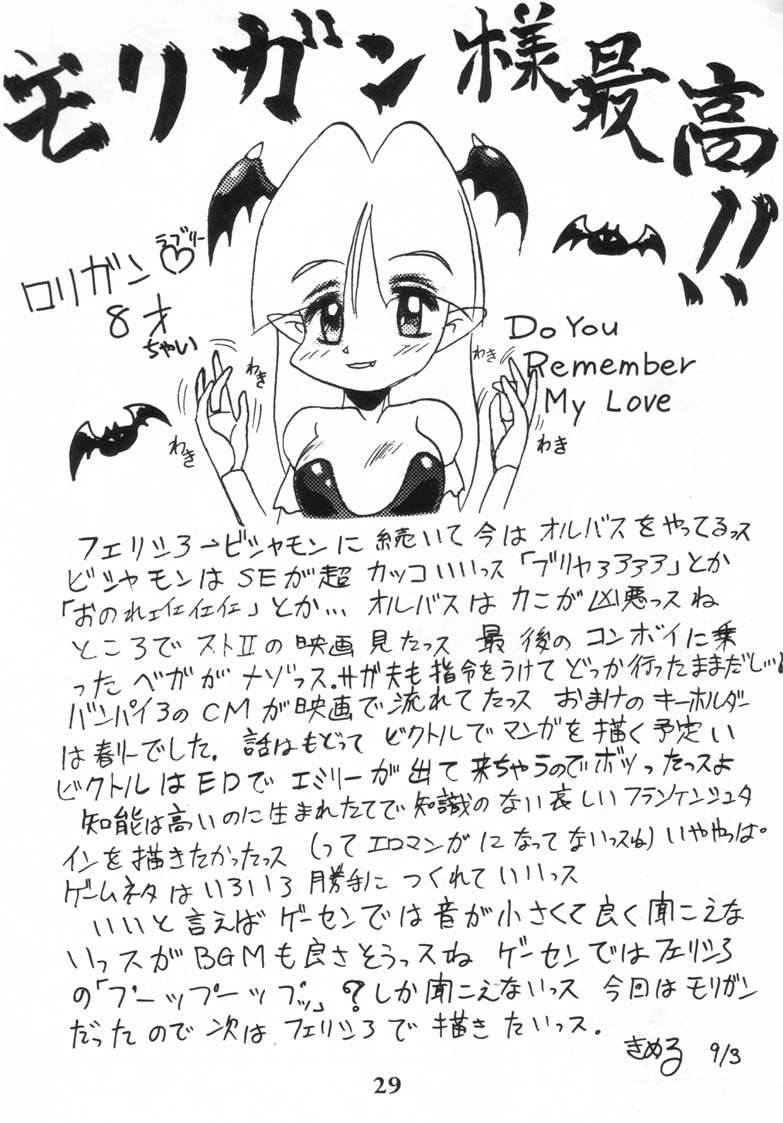 モリガン様最高!!
ラブリー
ロリガン♡
8才
ちゃい
わき
わき
わき
わき
Do You
Remember
My Love
フェリシる→ビシャモンに続いて今はオルバスをやってるっス
ビシャモンはSEが超カッコいいっス「ブリャァァァァ」とか
「おのれェイイイイ」とか… オルバスはカニが凶悪っスね
ところでストⅡの映画見たっス 最後のコンボイに乗
ったベガがナゾっス。サガ夫も指令をうけてどっか行ったままだし…
バンパイるのCMが映画で流れてたっス おまけのキーホルダー
は春リーでした。話はもどって ビクトルでマンガを描く予定い
ビクトルはEDでエミリーが出て来ちゃうのでボツったっスよ
知能は高いのに生まれたてで知識のない哀しいフランケンシュタ
インを描きたかったっス (ってエロマンガになってないっスね)いややっぱ。
ゲームネタはいろいろ勝手につくれていいっス
いいと言えばゲーセンでは音が小さくて良く聞こえな
いっスがBGMも良さそうっスね ゲーセンではフェリシる
の「プーップーップッ」?しか聞こえないっス 今回はモリガン
だったので次はフェリシるで描きたいっス。
きめる 9/3
29